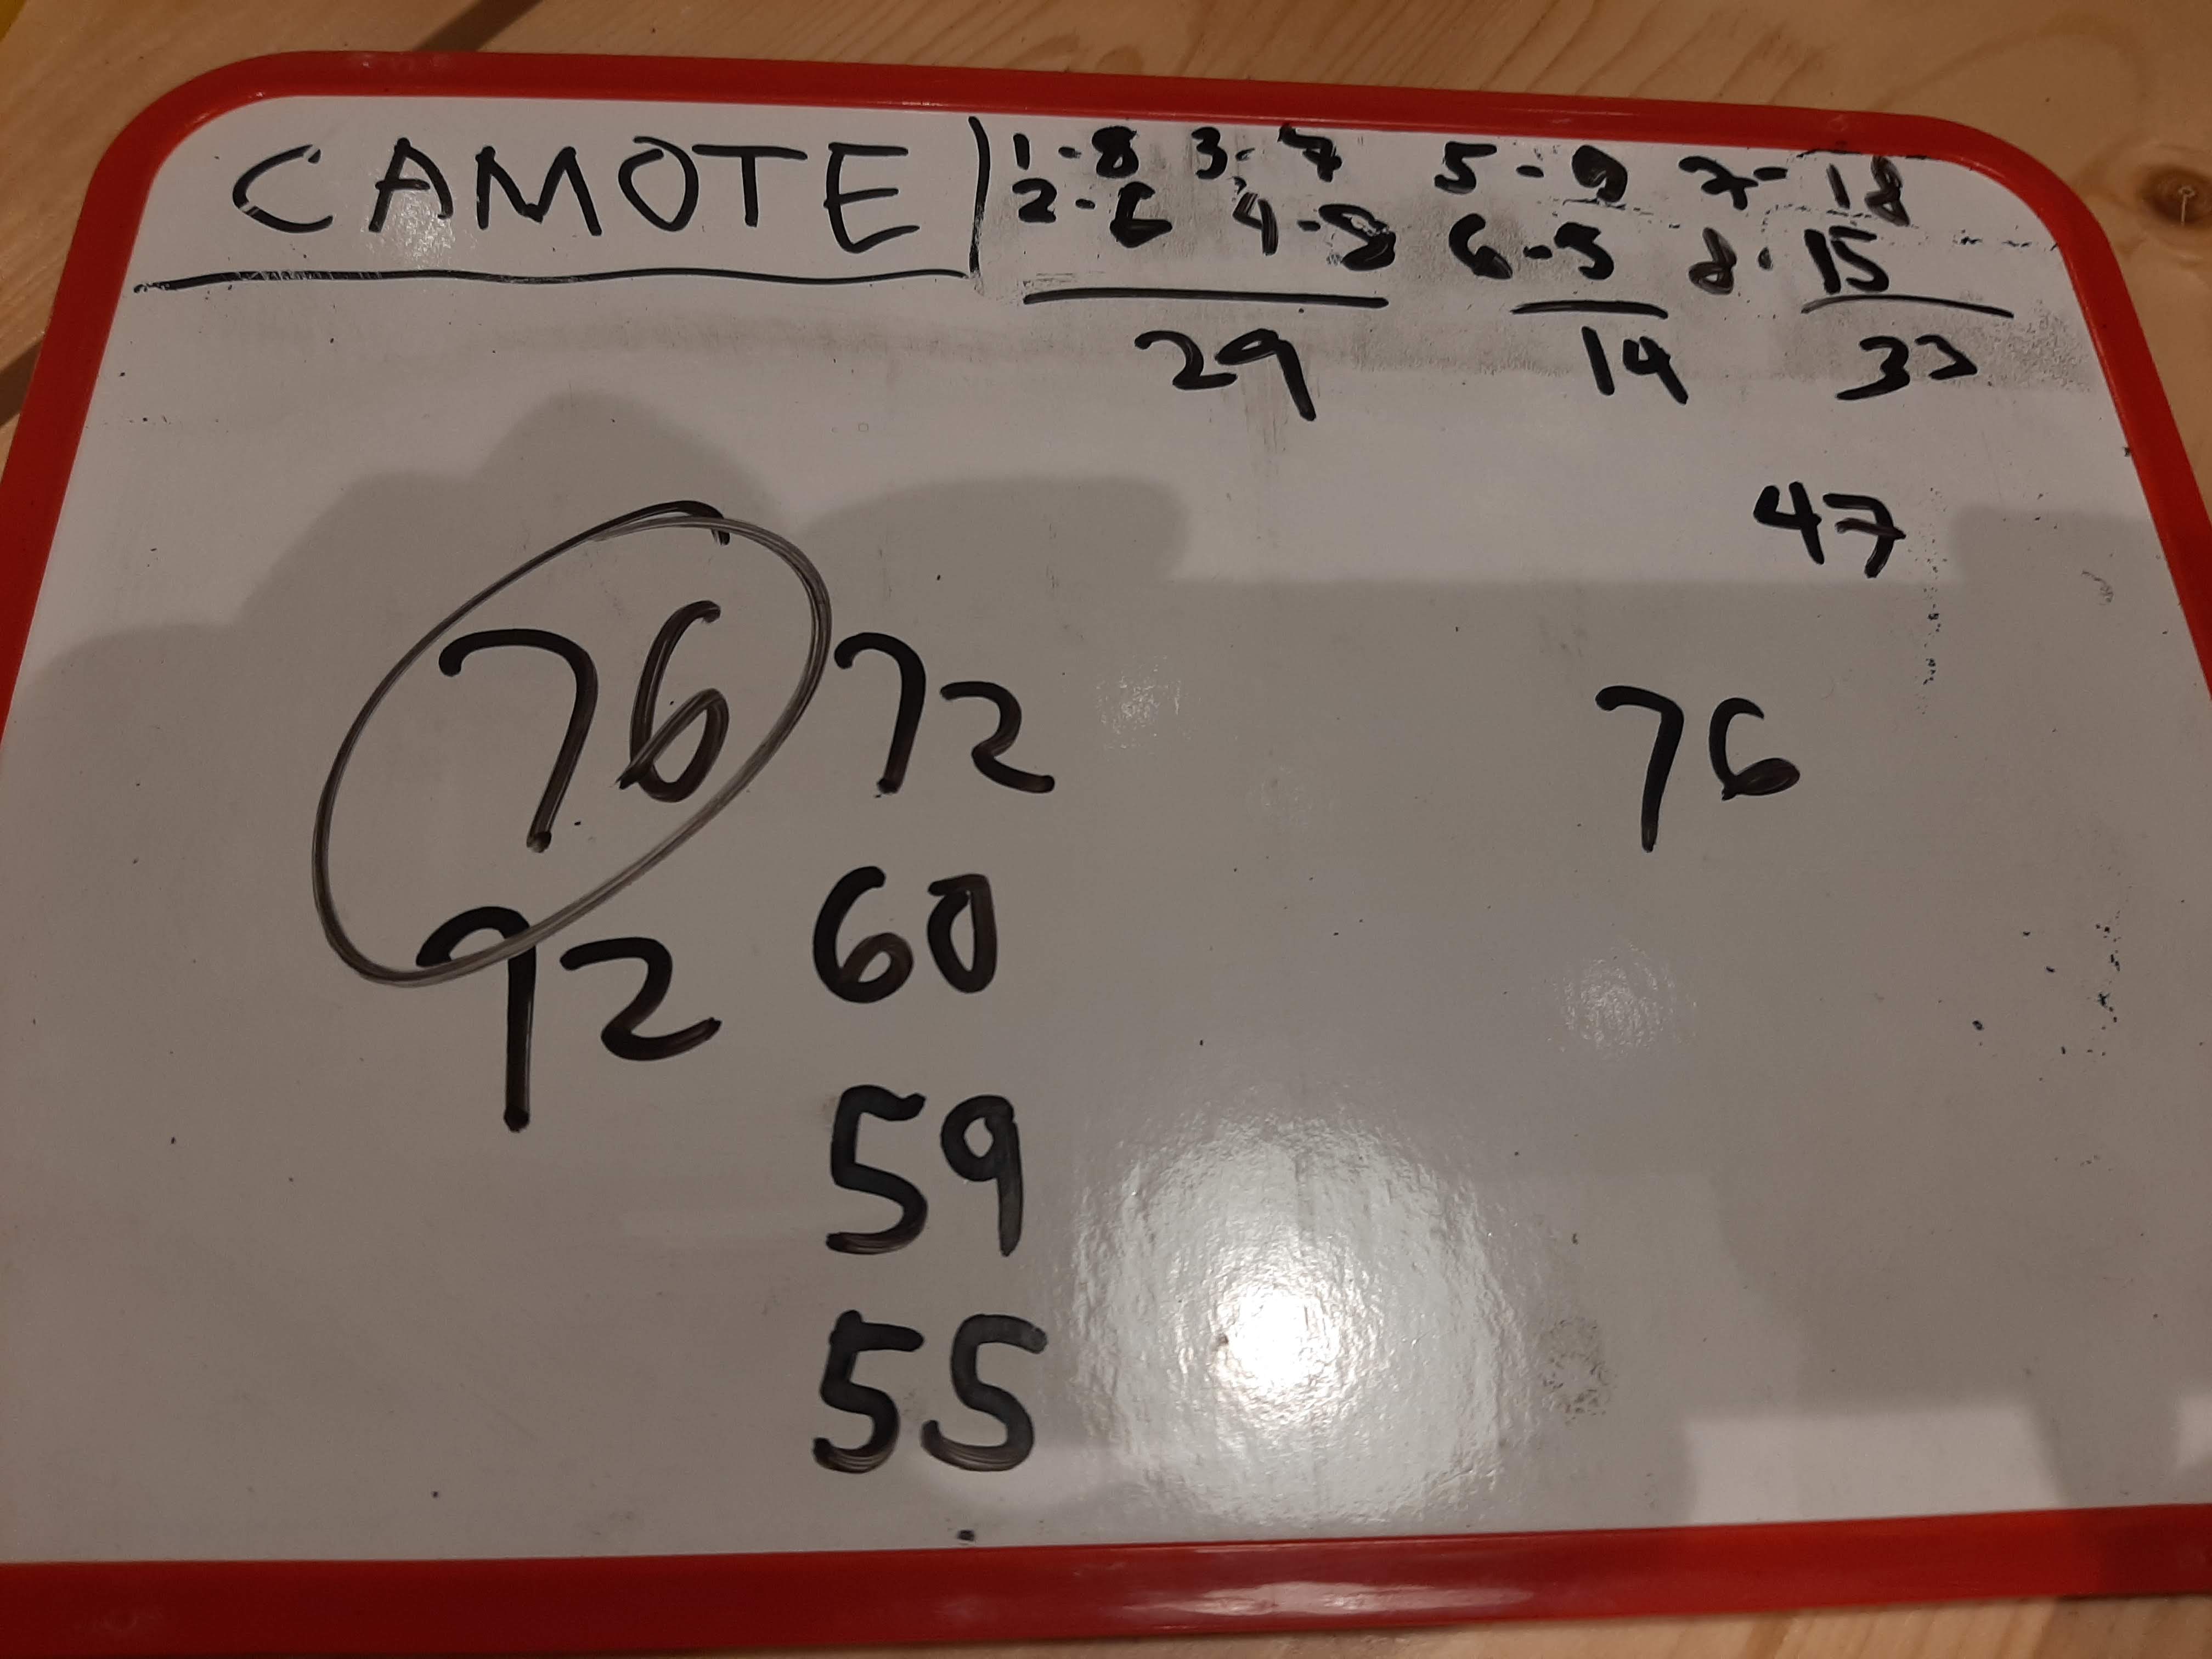 CAMOTE 1-8 3-7 5-9 7-18
2-6 4-8 6-5 8-15
29 14 33
47
76 72 76
92 60
59
55